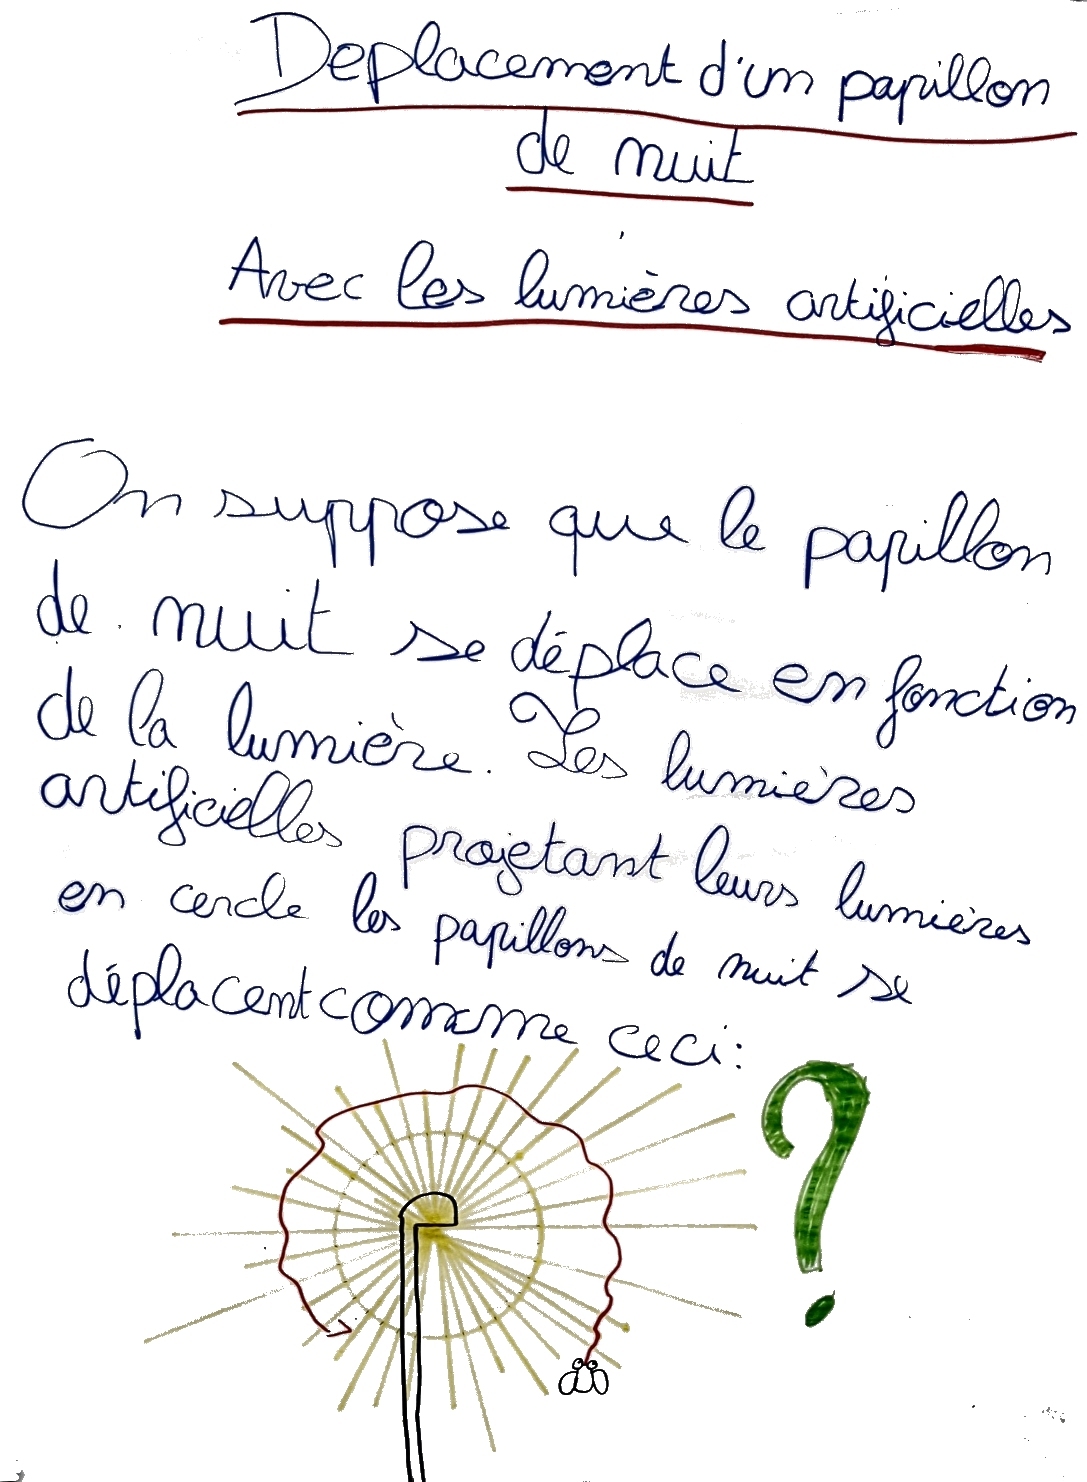 Deplacement d'un papillon
de nuit
Avec les lumières artificielles
On suppose que le papillon
de nuit se déplace en fonction
de la lumière. Les lumières
artificielles projetant leurs lumières
en cercle les papillons de nuit se
déplacent comme ceci:
?